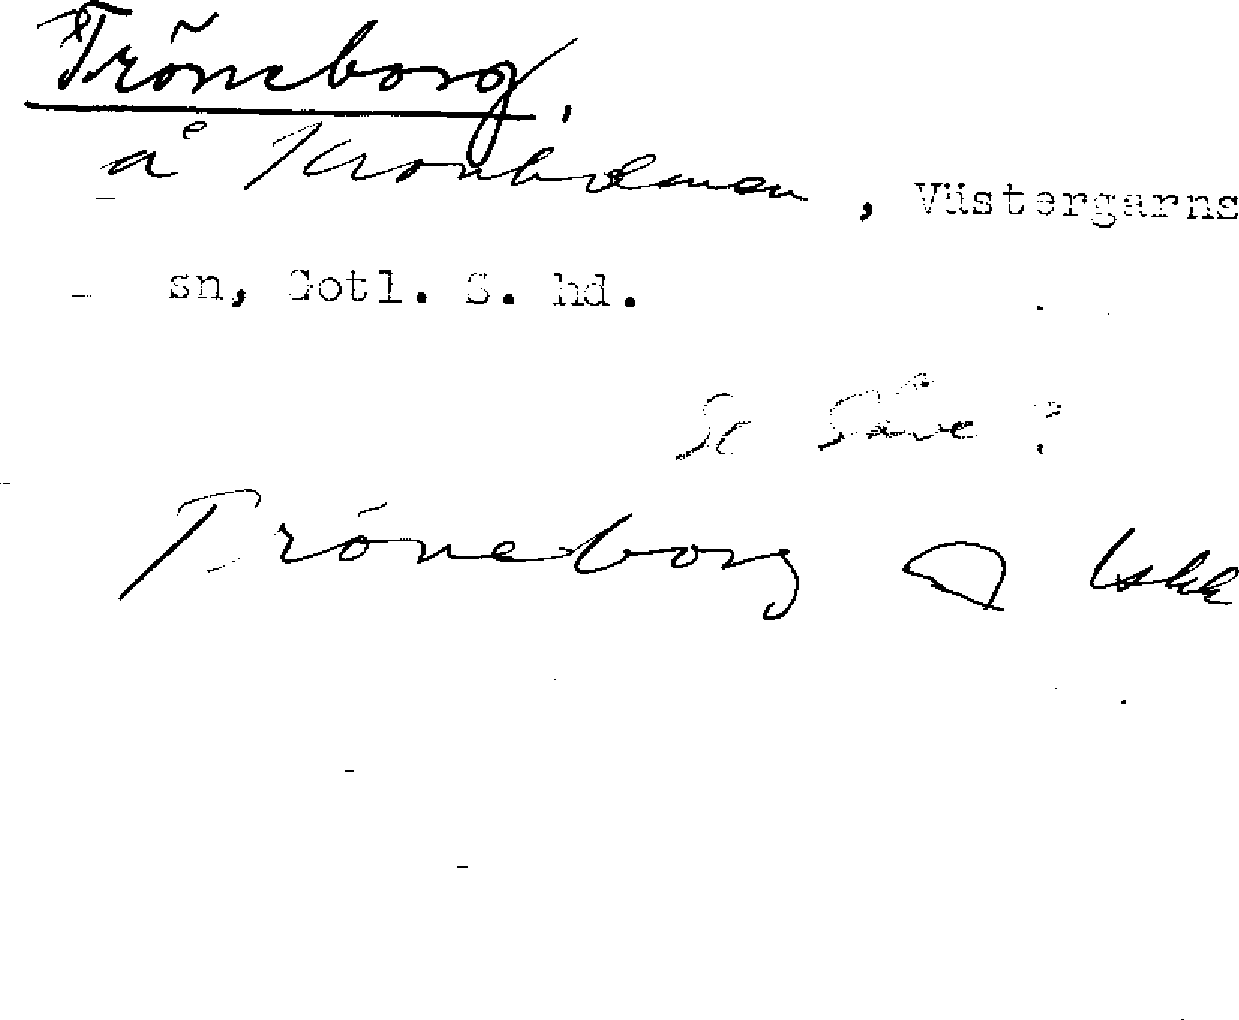 Tröneborg,
å Kronholmen, Västergarns
sn, Gotl. S. hd.
Se Säve?
Tróneborg